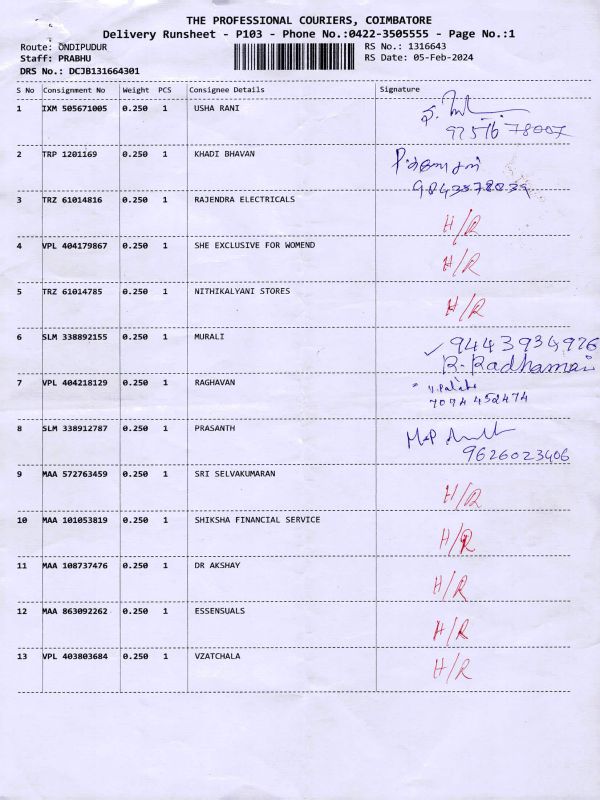 THE PROFESSIONAL COURIERS, COIMBATORE
Delivery Runsheet - P103 - Phone No.:0422-3505555 - Page No.:1
Route: ONDIPUDUR RS No.: 1316643
Staff: PRABHU RS Date: 05-Feb-2024
DRS No.: DCJB131664301
S No Consignment No Weight PCS Consignee Details Signature
1 IXM 505671005 0.250 1 USHA RANI
2 TRP 1201169 0.250 1 KHADI BHAVAN
3 TRZ 61014816 0.250 1 RAJENDRA ELECTRICALS
H/R
4 VPL 404179867 0.250 1 SHE EXCLUSIVE FOR WOMEND
H/R
5 TRZ 61014785 0.250 1 NITHIKALYANI STORES
H/R
6 SLM 338892155 0.250 1 MURALI
9443934926
R. Radhamani
7 VPL 404218129 0.250 1 RAGHAVAN
7074 452474
8 SLM 338912787 0.250 1 PRASANTH
9626023406
9 MAA 572763459 0.250 1 SRI SELVAKUMARAN
H/R
10 MAA 101053819 0.250 1 SHIKSHA FINANCIAL SERVICE
H/R
11 MAA 108737476 0.250 1 DR AKSHAY
H/R
12 MAA 863092262 0.250 1 ESSENSUALS
H/R
13 VPL 403803684 0.250 1 VZATCHALA
H/R